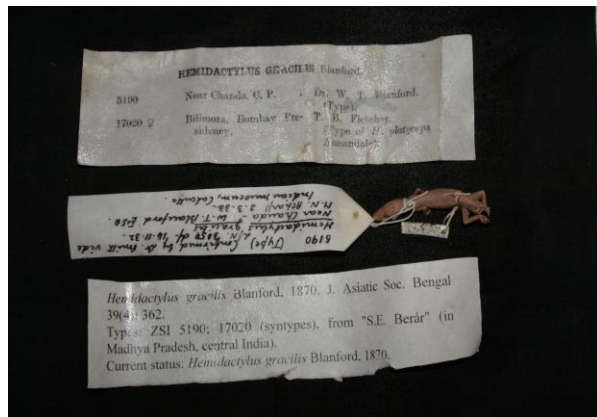 HEMIDACTYLUS GRACILIS Blanford.
5190 Near Chanda, C. P. . Dr. W. T. Blanford.
(Type).
17020 ♀ Bilimora, Bombay Pre- T. B. Fletcher.
sidency. (Type of H. platyceps
Annandale).
5190 (Type) Confirmed by Dr. Smith vide
L/N. 3850 of 14-11-32.
Hemidactylus gracilis
Near Chanda - W. T. Blanford Esq.
M. N. Acharji 3.3.33.
Indian museum, Calcutta.
Hemidactylus gracilis Blanford, 1870. J. Asiatic Soc. Bengal
39(4): 362.
Types: ZSI 5190; 17020 (syntypes), from "S.E. Berár" (in
Madhya Pradesh, central India).
Current status: Hemidactylus gracilis Blanford, 1870.